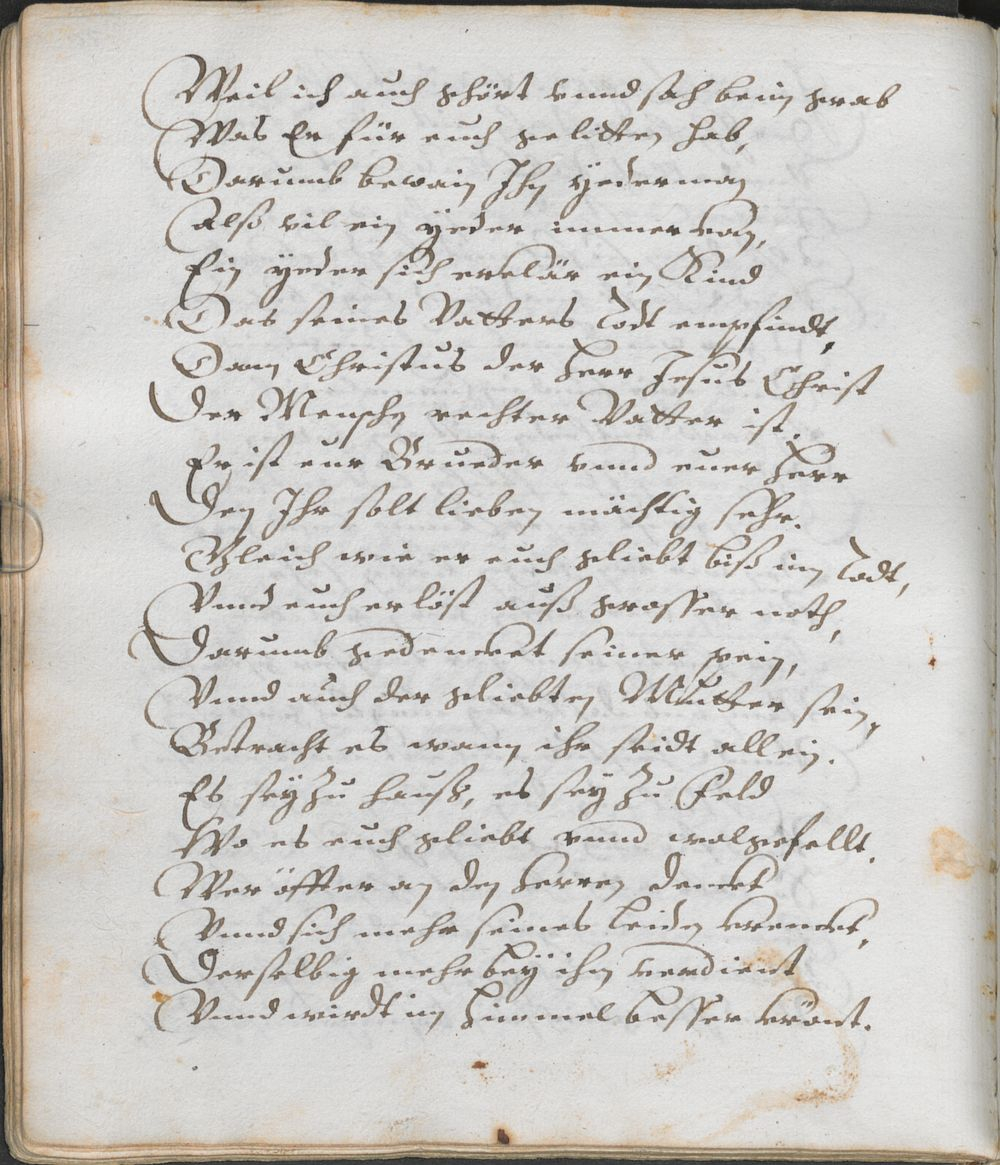 Weil ich auch ghört vnnd sach beim grab
Was Er für euch gelitten hab,
Darumb bewain Ihn yederman
Alß vil ein yeder immer kan,
Ein yeder sich erclär ein Kind
Das seines Vatters Todt empfindt,
Dann Christus der Herr Jesus Christ
Der Menschen rechter Vatter ist.
Er ist eur Brueder vnnd euer Herr
Den Ihr solt lieben mächtig sehr.
Gleich wie er euch gliebt biß in Todt,
Vnnd euch erlöst auß grosser noth,
Darumb gedencket seiner pein,
Vnnd auch der gliebten Mutter sein,
Betracht es wann ihr seidt allein.
Es sey zu hauß, es sey zu Feld
Wo es euch gliebt vnnd wolgefellt.
Wer öffter an den Herren denckt
Vnnd sich mehr seines Leiden krenckt,
Derselbig mehr bey ihm verdient
Vnnd wirdt im Himmel besser krönt.